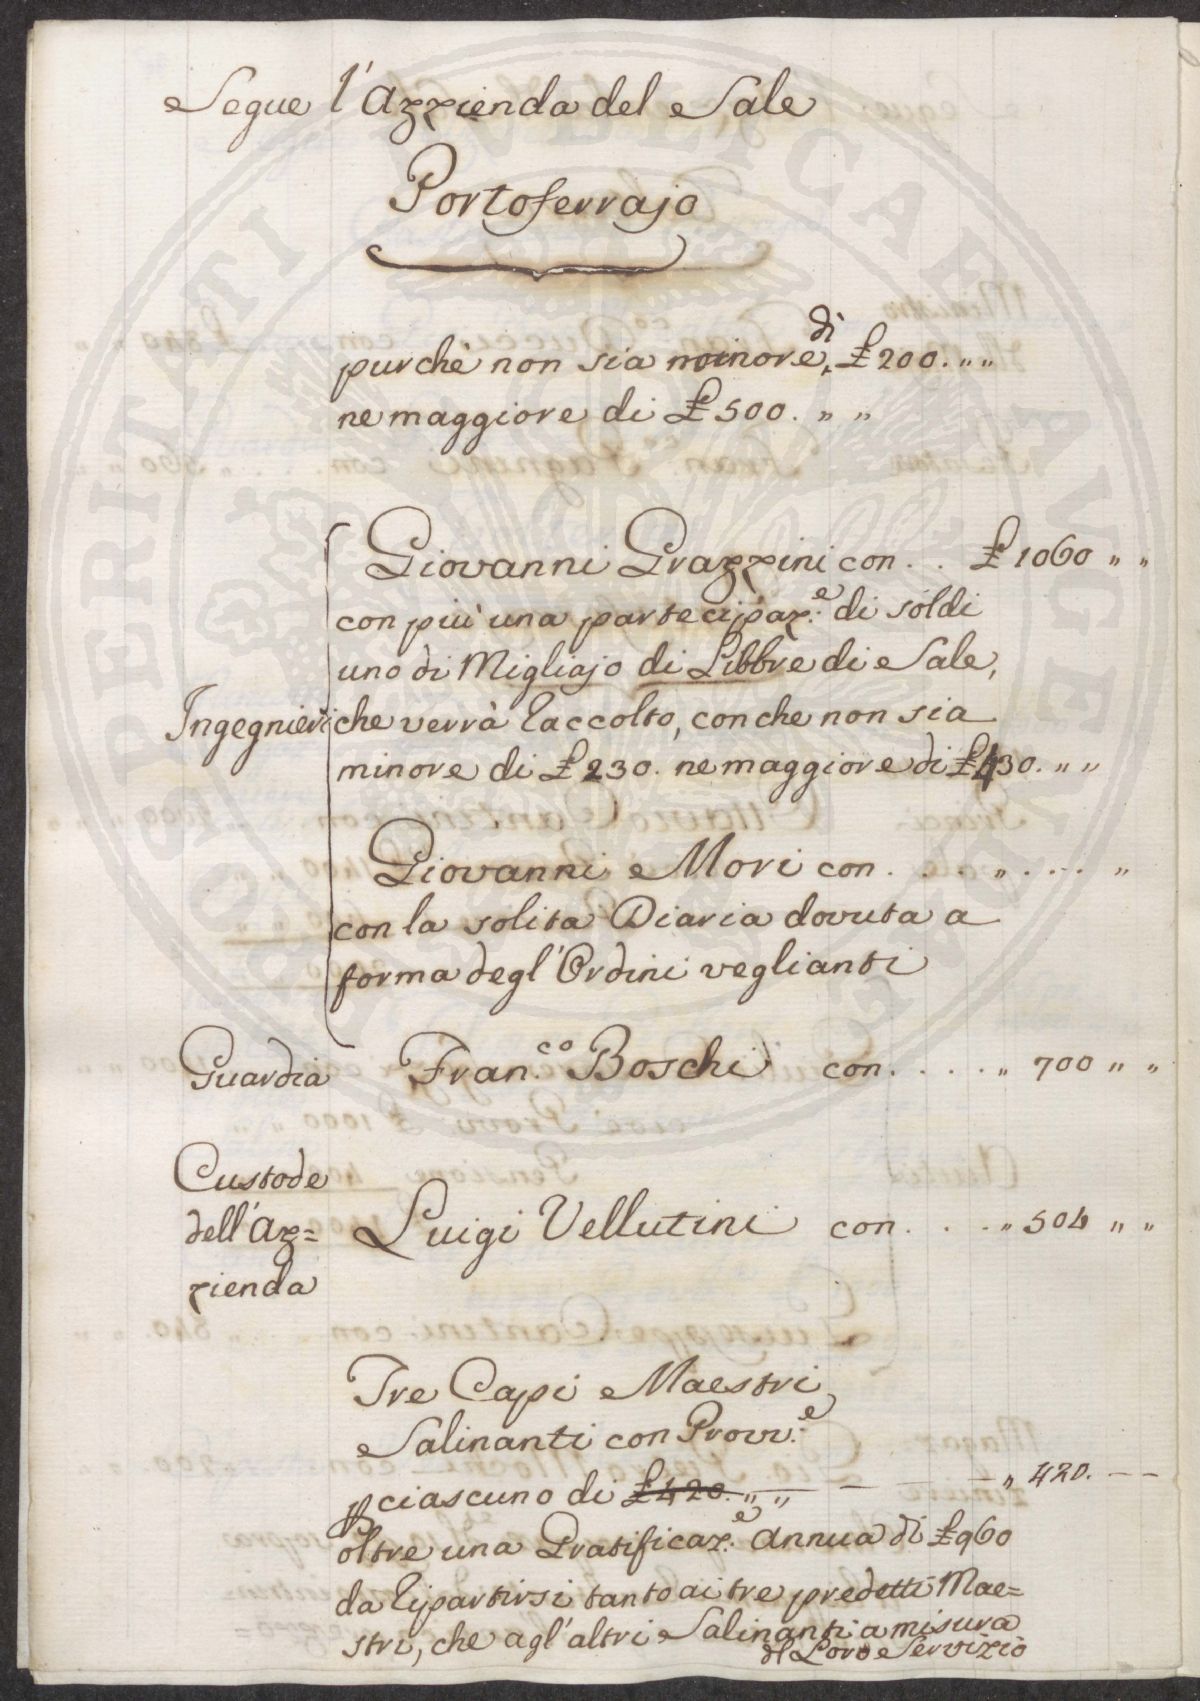 Segue l'Azzienda del Sale
Portoferrajo
purchè non sia minore di £ 200. „ „
ne maggiore di £ 500. „ „
Giovanni Grazzini con . . £ 1060 „ „
con più una partecipaz.e di soldi
uno di Migliajo di Libbre di Sale,
Ingegnieri che verrà raccolto, con che non sia
minore di £ 230. ne maggiore di £ 430. „ „
Giovanni Mori con . . . . „ . . . . „
con la solita Diaria dovuta a
forma degl'Ordini veglianti
Guardia Fran.co Boschi con . . . . . „ 700 „ „
Custode
dell'Az=
zienda
Luigi Vellutini con . . . . „ 504 „ „
Tre Capi Maestri
Salinanti con Provv.e
p ciascuno di £ 420. „ „ — — „ 420. — —
oltre una Gratificaz.e annua di £ 960
da ripartirsi tanto ai tre predetti Mae=
stri, che agl'altri Salinanti a misura
del Loro Servizio
PROSPERITATI PUBLICAE AUGENDAE